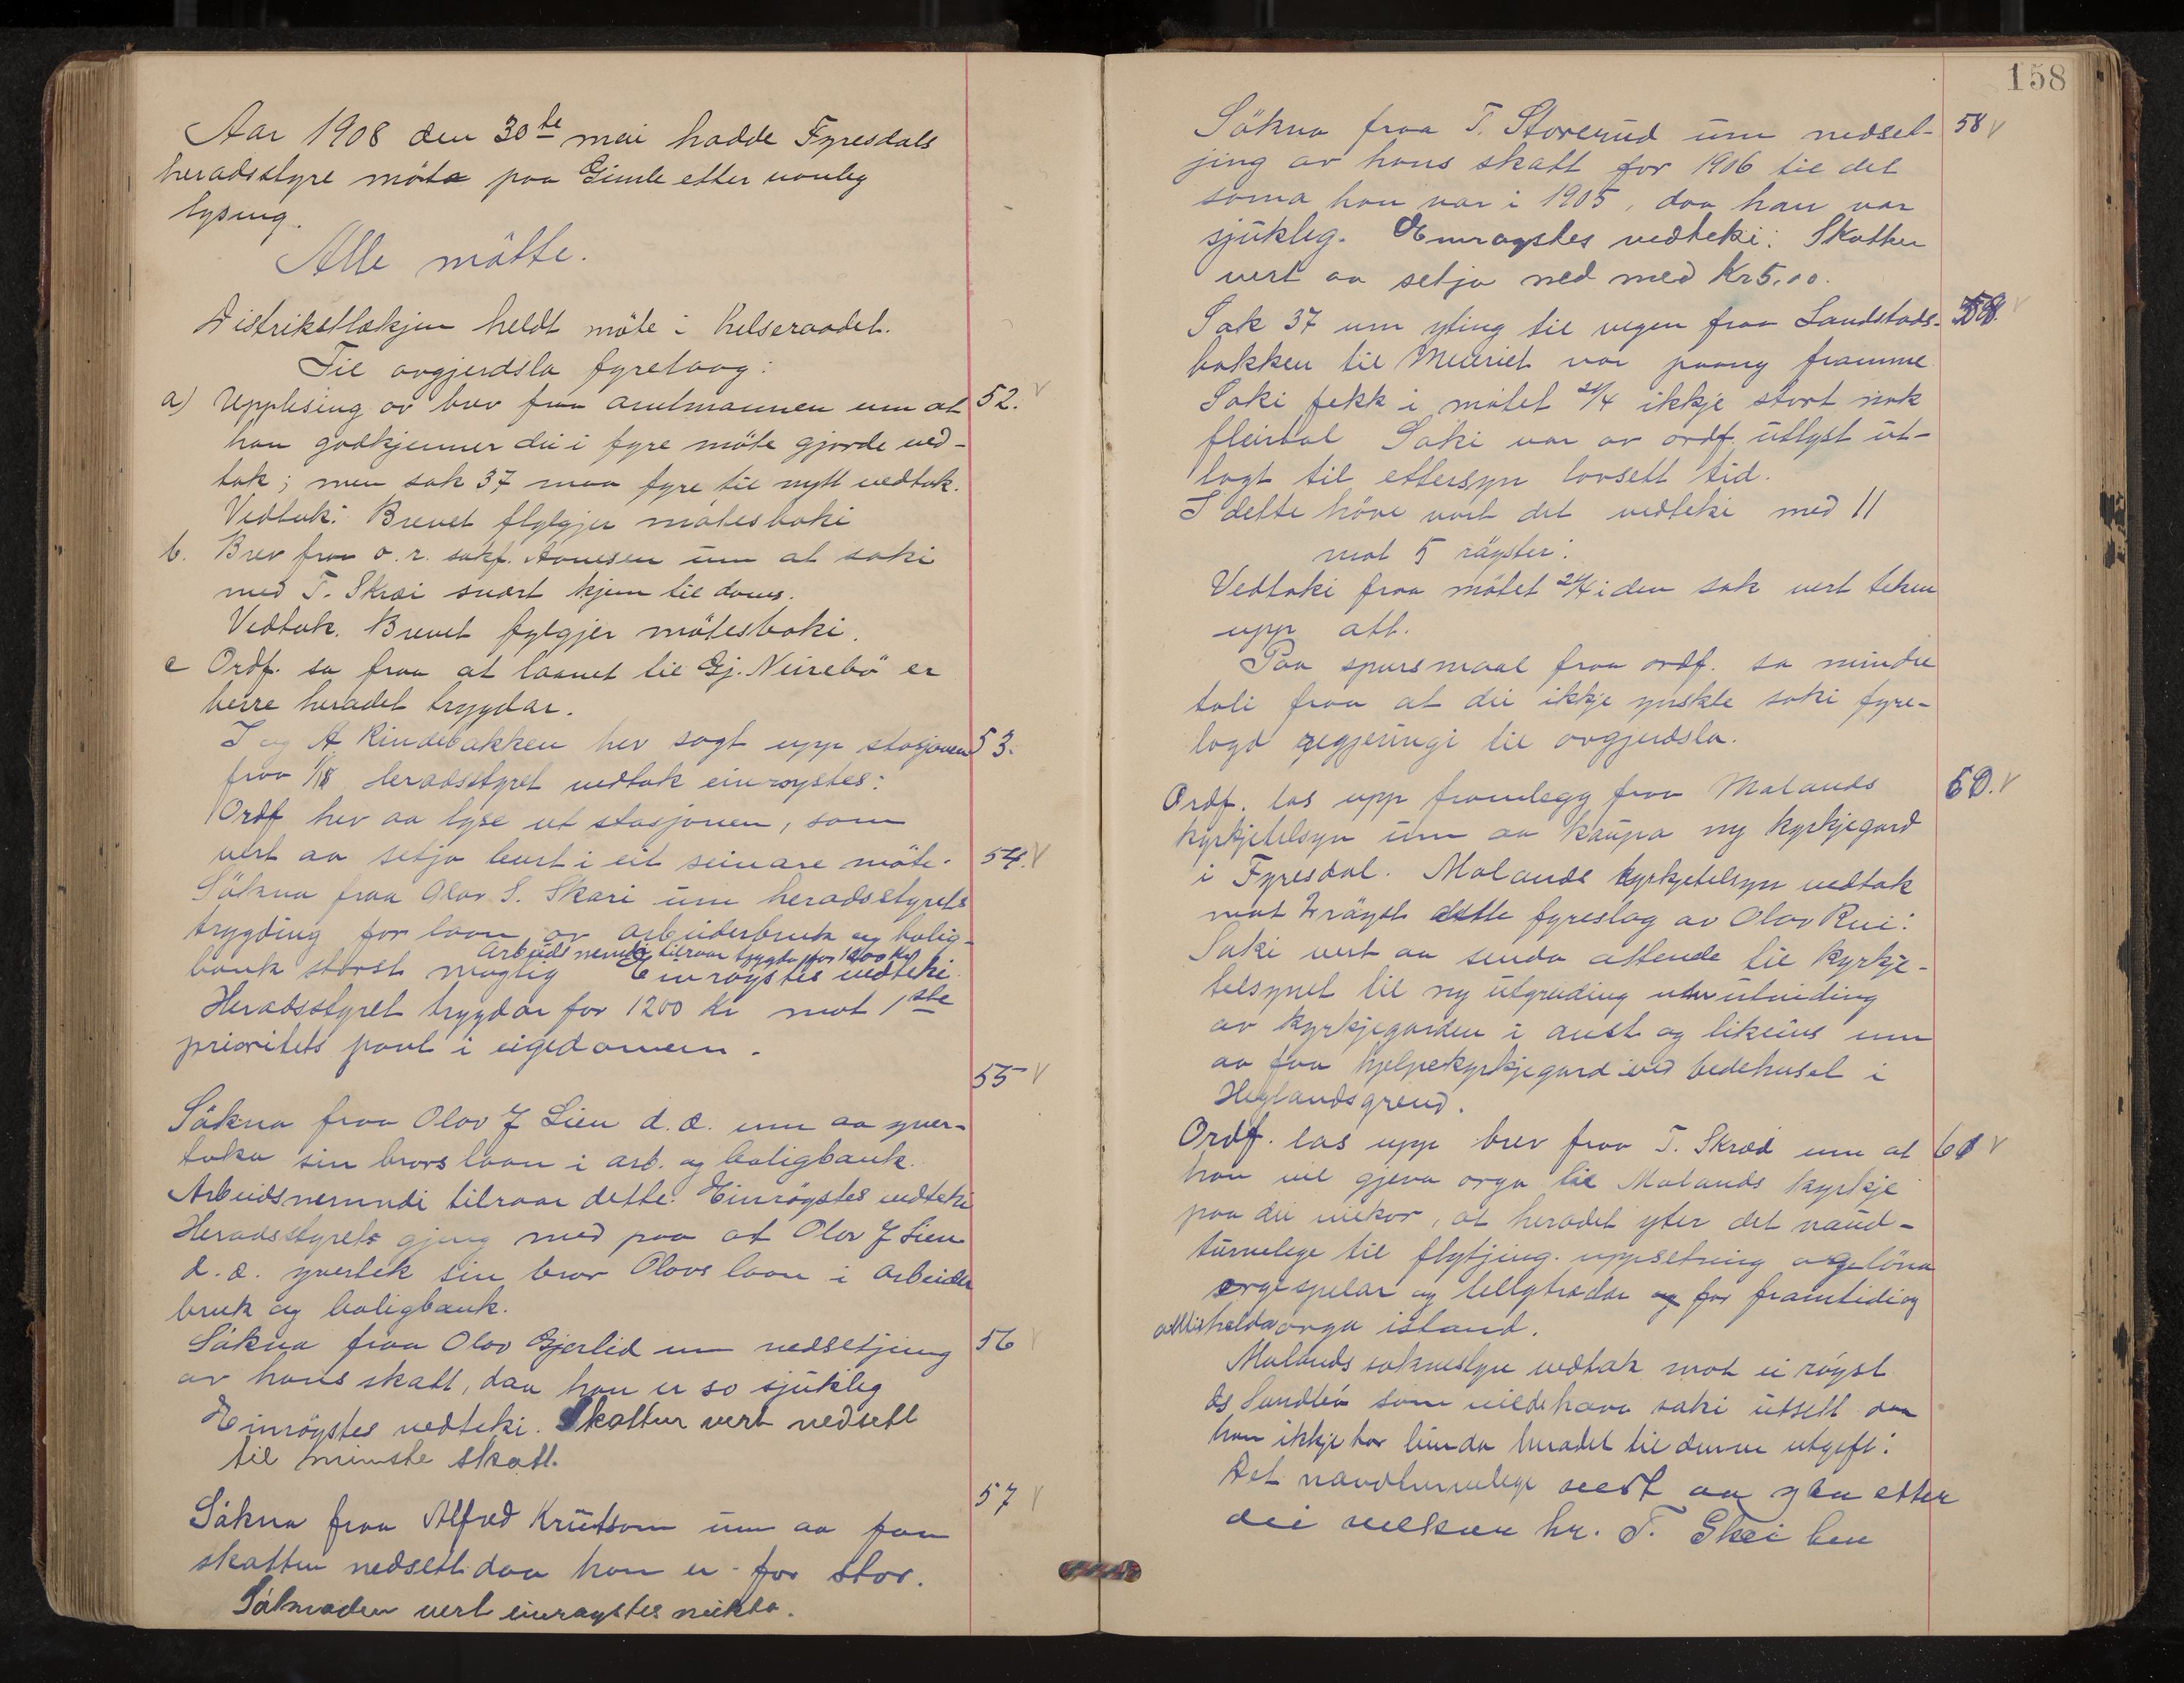 Aar 1908 den 30te mai hadde Fyresdals
heradsstyre möte paa Gimle etter vanleg
lysing.
Alle mötte.
Distriktslækjen heldt möte i helseraadet.
Til avgjerdsla fyrelaag:
a) Upplesing av brev fraa amtmannen um at 52.
han godkjenner dei i fyre möte gjorde ved-
tak; men sak 37 maa fyre til nytt vedtak.
Vedtak: Brevet fylgjer mötesboki
b. Brev fraa o.r. sakf. Aanesen um at saki
med T. Skræi snart kjem til doms.
Vedtak. Brevet fylgjer mötesboki.
c Ordf. sa fraa at laanet til Gj. Neirebö er
berre heradet tryggdar.
I og A Rindebakken hev sagt upp stasjonen 53.
fraa 1/18 Heradsstyret vedtok einroystes:
Ordf hev aa lyse ut stasjonen, som
vert aa setja burt i eit seinare möte.
Sökna fraa Olav S. Skari um heradsstyrets 54.
trygding for laan av arbeiderbruk og bolig-
Arbeidsnemndi tilraar trygda for 1200 Kr
bank störst mogleg Einröystes vedteki.
Heradsstyret tryggdar for 1200 kr mot 1ste
prioritets pant i eigedomen.
55
Sökna fraa Olav J Lien d.æ. um aa yver-
taka sin brors laan i arb. og boligbank.
Arbeidsnemndi tilraar dette. Einröystes vedteki
Heradsstyret gjeng med paa at Olav J Lien
d.æ. yvertek sin bror Olavs laan i arbeider
bruk og boligbank.
Sökna fraa Olav Gjerlid um nedsetjing 56
av hans skatt, daa han er so sjukleg
Einröystes vedteki. Skatten vert nedsett
til minste skatt.
57
Sökna fraa Alfred Knutson um aa faa
skatten nedsett daa han er for stor.
Söknaden vert einröystes neikta.
158
Sökna fraa T. Storerud um nedset- 58
jing av hans skatt for 1906 til det
soma han var i 1905, daa han var
sjukleg. Einröystes vedteki: Skatten
vert aa setja ned med Kr 5,00.
Sak 37 um yting til vegen fraa Landstads- 59.
bakken til Meieriet var paany framme
Saki fekk i mötet 24/4 ikkje stort nok
fleirtal Saki var av ordf. utlyst ut-
lagt til ettersyn lovsett tid.
I dette höve vart det vedteki med 11
mot 5 röyster:
Vedtaki fraa mötet 24/4 i den sak vert teken
upp att.
Paa spursmaal fraa ordf. sa mindre
tali fraa at dei ikkje ynskte saki fyre-
lagd regjeringi til avgjerdsla.
Ordf. las upp framlegg fraa Molands 60.
kyrkjetilsyn um aa kaupa ny kyrkjegard
i Fyresdal. Molands kyrkjetilsyn vedtok
mot 2 röyst dette fyreslag av Olav Rui:
Saki vert aa senda attende til kyrkje-
tilsynet til ny utgreiding um utviding
av kyrkjegarden i aust og likeins um
aa faa hjelpekyrkjegard ved bedehuset i
Heglandsgrend.
Ordf. las upp brev fraa T. Skræi um at 61
han vil gjeva orga til Molands kyrkje
paa dei vilkor, at heradet yter det naud-
turvelege til flytjing, uppsetning og löna
orgespelar og belgtrødar og for framtidi og
alltid halda orga istand.
Molands soknestyre vedtok mot ei röyst
som vilde hava saki utsett daa
han ikkje tor binda heradet til denne utgift:
Det naudturvelege vert aa yta etter
dei vilkor hr. T. Skræi hev